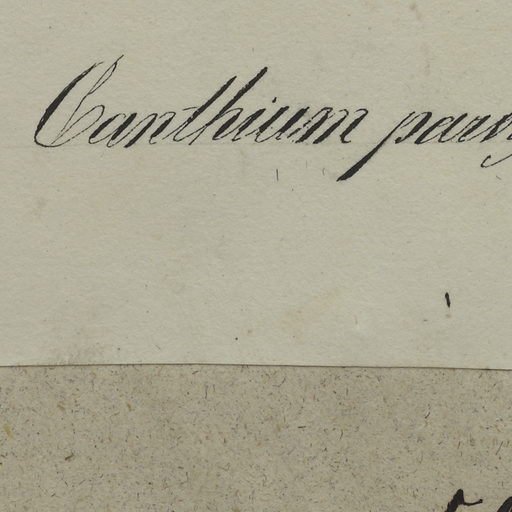 Canthium parv